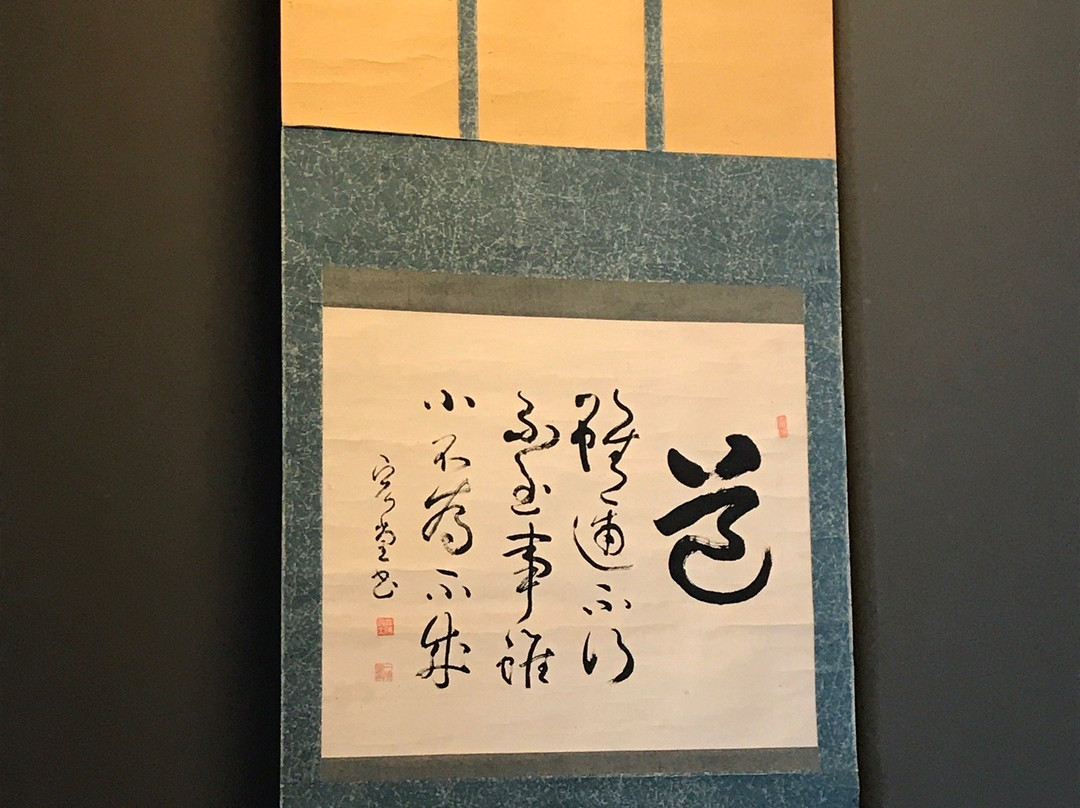 道
雖邇不行
不至事雖
小不為不成
堂書